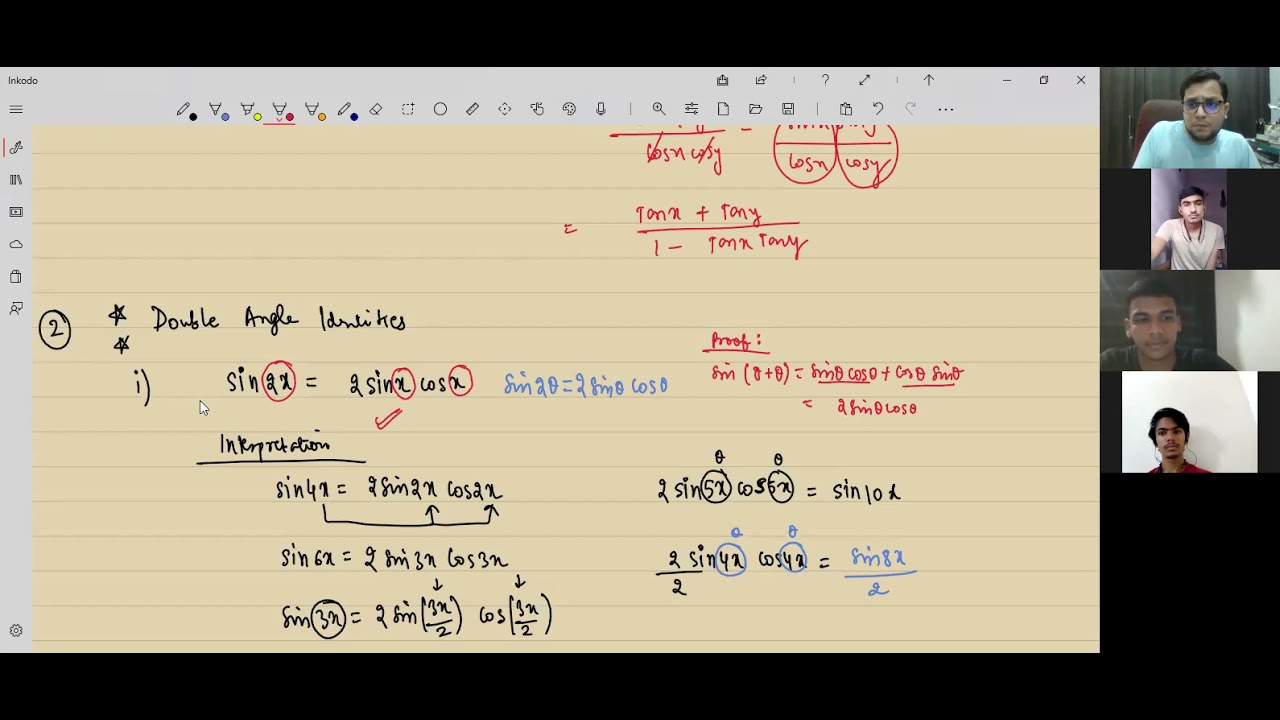 Inkodo
cosx cosy = cosx cosy
= Tanx + Tany
1 - Tanx Tany
2 * Double Angle Identities
*
i) sin 2x = 2 sin x cos x sin2θ = 2 sinθ cosθ
Proof:
sin (θ+θ) = sinθ cosθ + cosθ sinθ
= 2 sinθ cosθ
Interpretation
sin4x = 2 sin2x cos2x
sin6x = 2 sin3x cos3x
sin 3x = 2 sin(3x/2) cos(3x/2)
θ θ
2 sin 5x cos 5x = sin10x
θ θ
2 sin 4x cos 4x = sin8x
2 2